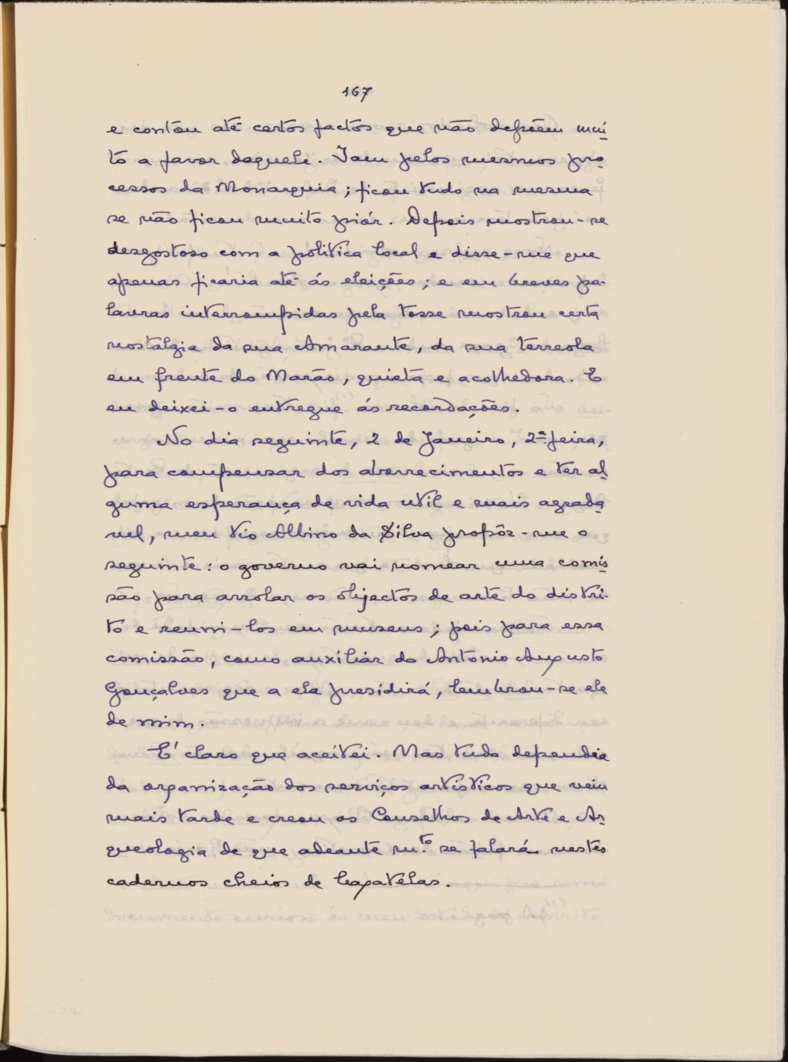 167
e contou até certos factos que não depõem mui
to a favor daquele. Iam pelos mesmos pro
cessos da Monarquia; ficou tudo na mesma
se não ficou muito piór. Depois mostrou-se
desgostoso com a politica local e disse-me que
apenas ficaria até ás eleições; e em breves pa-
lavras interrompidas pela tosse mostrou certa
nostalgia da sua Amarante, da sua terreola
em frente do Marão, quieta e acolhedora. E
eu deixei-o entregue ás recordações.
No dia seguinte, 2 de Janeiro, 2ª feira,
para compensar dos aborrecimentos e ter al
guma esperança de vida util e mais agrada
vel, meu tio Albino da Silva propôz-me o
seguinte: o governo vai nomear uma comis
são para arrolar os objectos de arte do distri-
to e reuni-los em museus; pois para essa
comissão, como auxiliár do Antonio Augusto
Gonçalves que a ela presidirá, lembrou-se ele
de mim.
E' claro que aceitei. Mas tudo dependia
da organização dos serviços artisticos que veiu
mais tarde e creou os Conselhos de Arte e Ar
queologia de que adeante m.to se falará nestes
cadernos cheios de bagatelas.